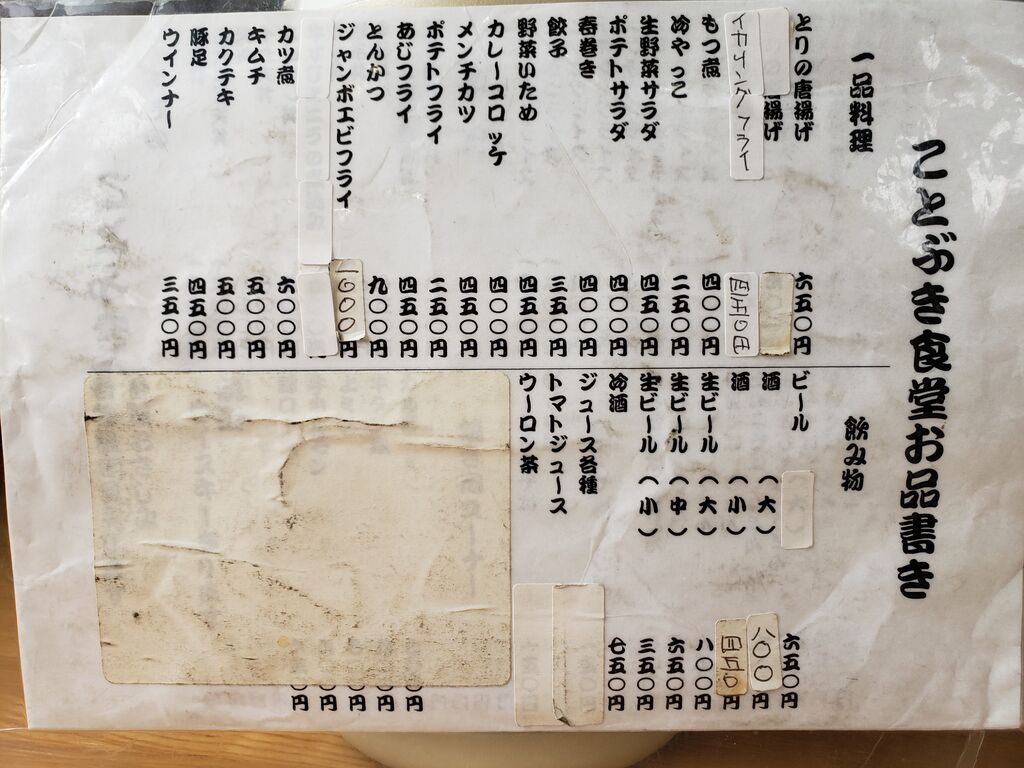 ことぶき食堂お品書き
一品料理
とりの唐揚げ 六五〇円
唐揚げ
イカリングフライ 四五〇円
もつ煮 四〇〇円
冷やっこ 二五〇円
生野菜サラダ 四五〇円
ポテトサラダ 四〇〇円
春巻き 四〇〇円
餃子 三五〇円
野菜いため 四五〇円
カレーコロッケ 四〇〇円
メンチカツ 四五〇円
ポテトフライ 二五〇円
あじフライ 四五〇円
とんかつ 九〇〇円
ジャンボエビフライ 一〇〇〇円
カツ煮 六〇〇円
キムチ 五〇〇円
カクテキ 五〇〇円
豚足 四五〇円
ウインナー 三五〇円
飲み物
ビール 六五〇円
酒(大) 八〇〇円
酒(小) 四五〇円
生ビール(大) 八〇〇円
生ビール(中) 六五〇円
生ビール(小) 三五〇円
冷酒 七五〇円
ジュース各種
トマトジュース
ウーロン茶